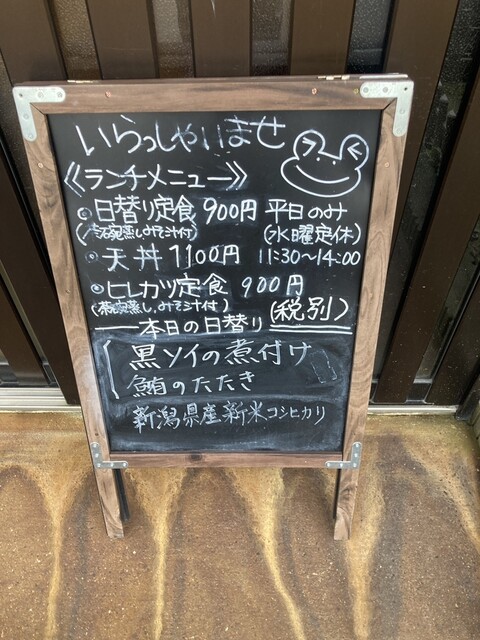 いらっしゃいませ
《ランチメニュー》
日替り定食 900円 平日のみ
(茶碗蒸しみそ汁付) (水曜定休)
天丼 1100円 11:30~14:00
ヒレカツ定食 900円
(茶碗蒸し,みそ汁付) (税別)
本日の日替り
黒ソイの煮付け
鮪のたたき
新潟県産新米コシヒカリ